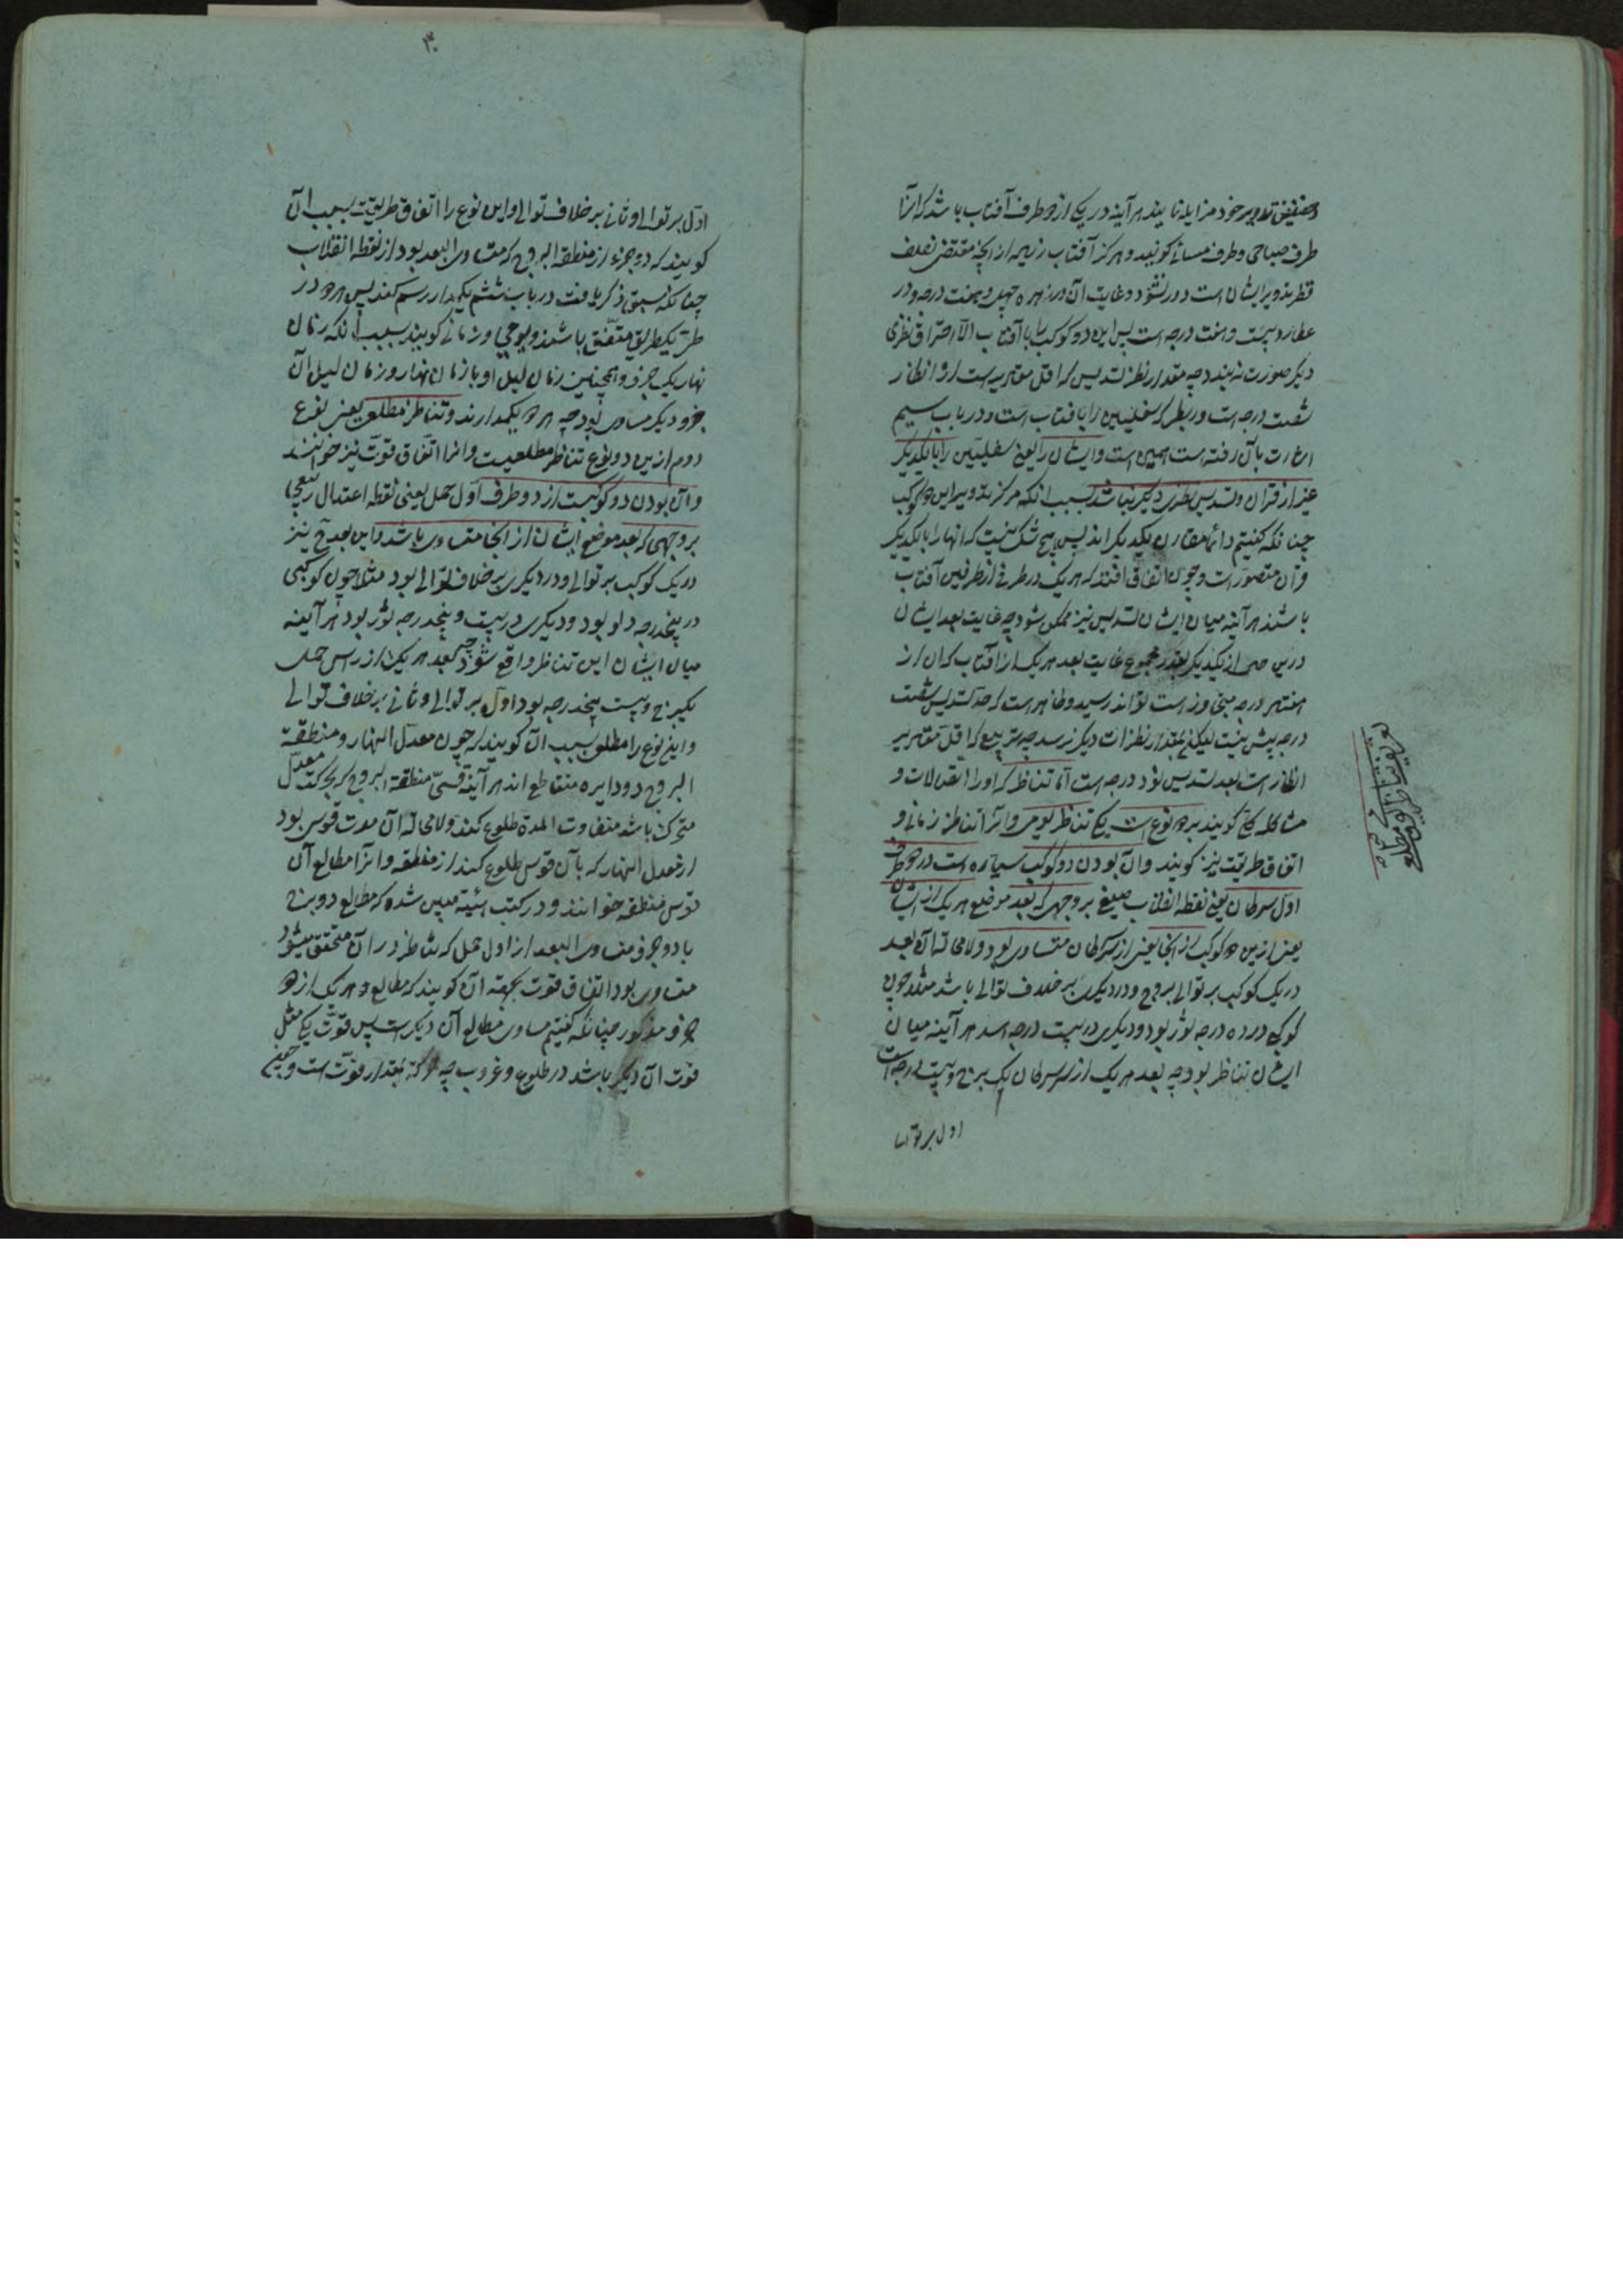 حضیض تداویر خود مزایله نمایند هر آینه در یکی از دو طرف آفتاب باشند که آنرا
طرف صباحی و طرف مسائی گویند و هرگز آفتاب زیاده از آنچه مقتضی نصف
قطر تدویر ایشان است دور نشود و غایت آن در زهره چهل و هفت درجه و در
عطارد بیست و هفت درجه است پس این دو کوکب را با آفتاب الا احتراق نظری
دیگر صورت نه بندد چه مقدار نظر تسدیس که اقل مقتربه است از انظار
شصت درجه است و ربطی که سفلیین را بافتاب است و در باب سیم
اشارت بآن رفته است همین است و ایشان را یعنی سفلیین را با یکدیگر
غیر از قران و تسدیس نظری دیگر نباشد بسبب آنکه مرکز تدویر این دو کوکب
چنانکه گفتیم دائما مقارن یکدیگراند پس هیچ شک نیست که آنها را با یکدیگر
قران متصور است و چون اتفاق افتد که هر یک در طرفی از طرفین آفتاب
باشند هر آینه میان ایشان تسدیس نیز ممکن شود چه غایت بعد ایشان
درین حین از یکدیگر بقدر مجموع غایت بعد هر یک از آفتاب که آن از
هفتاد درجه متجاوز است تواند رسید و ظاهر است که حد تسدیس شصت
درجه بیش نیست لیکن بمقدار نظرات دیگر نرسد چه تربیع که اقل مقتربه
انظار است بعد تسدیس نود درجه است اما تناظر که او را اتصالات و
مشاکله گویند بر دو نوع است یکی تناظر یومی و آنرا تناظر زمانی و
اتفاق طریقت نیز گویند و آن بودن دو کوکب سیاره است در دو طرف
اول سرطان یعنی نقطه انقلاب صیفی بر وجهی که بعد موضع هر یک از ایشان
یعنی ازین دو کوکب از آنجا یعنی از سر سرطان متساوی بود و لامحاله آن بعد
در یک کوکب بر توالی بروج و در دیگری بر خلاف توالی باشد مثلا چون
کوکبی در ده درجه ثور بود و دیگری در بیست درجه اسد هر آینه میان
ایشان تناظر بود چه بعد هر یک از سر سرطان یک برج و بیست درجه است
اول بر توالی
نوع تناظر مطلع
۳۰
اول بر توالی و ثانی بر خلاف توالی و این نوع را اتفاق طریقت بسبب آن
گویند که دو جزء از منطقة البروج که متساوی البعد بود از نقطه انقلاب
چنانکه سبق ذکر یافت در باب ششم یکمدار رسم کنند پس هر دو در
طریق متفق باشند و یومی و زمانی گویند بسبب آنکه زمان
نهار یک جزو و همچنین زمان لیل او با زمان نهار و زمان لیل آن
جزو دیگر مساوی بود چه هر دو یکمدارند و تناظر مطلعی یعنی نوع
دوم ازین دو نوع تناظر مطلعیست و آنرا اتفاق قوت نیز خوانند
و آن بودن دو کوکبست از دو طرف اول حمل یعنی نقطه اعتدال ربیعی
بر وجهی که بعد موضع ایشان از آنجا متساوی باشد و این بعد نیز
در یک کوکب بر توالی و در دیگری بر خلاف توالی بود مثلا چون کوکبی
در پنجدرجه دلو بود و دیگری در بیست و پنجدرجه ثور بود هر آینه
میان ایشان این تناظر واقع شود چه بعد هر یک از راس حمل
یکبرج و بیست پنجدرجه بود اول بر توالی و ثانی بر خلاف توالی
و این نوع را مطلعی بسبب آن گویند که چون معدل النهار و منطقة
البروج دو دایره متقاطع اند هر آینه قسی منطقة البروج که بحرکت معدل
متحرک باشد متفاوت المدة طلوع کند و لامحاله آن مدت قوسی بود
از معدل النهار که با آن قوس طلوع کند از منطقه و آنرا مطالع آن
قوس منطقه خوانند و در کتب هیئة مبین شده که مطالع دو برج
یا دو جزو متساوی البعد از اول حمل که تناظر در آن متحقق میشود
متساوی بود اتفاق قوت بجهة آن گویند که مطالع هر یک از دو
جزو مذکور چنانکه گفتیم مساوی مطالع آن دیگر است پس قوت یکی مثل
قوت آن دیگر باشد در طلوع و غروب چه حرکة بمقدار قوت است و همچنین